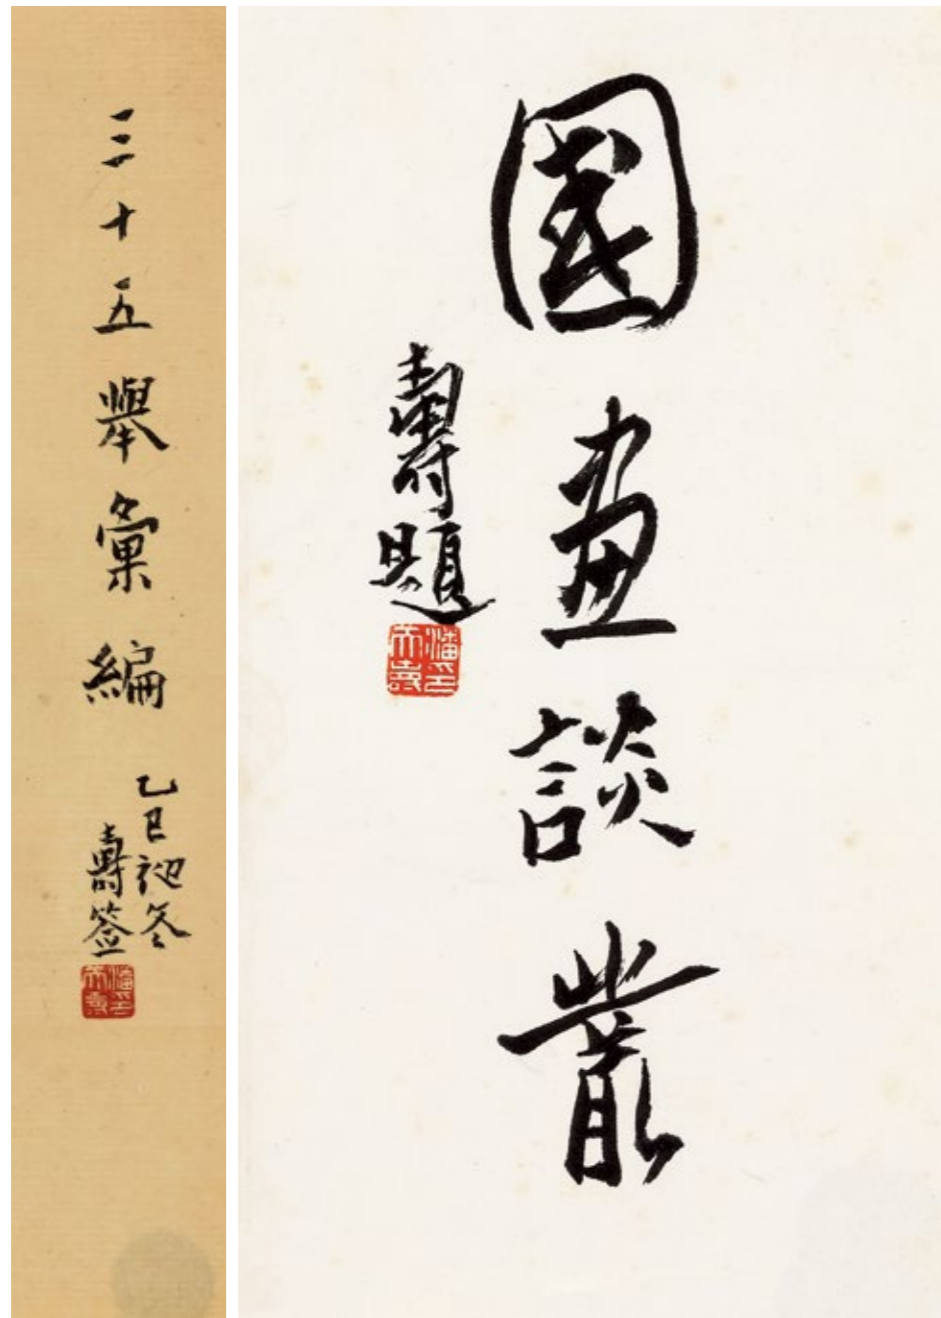 三十五舉彙編
乙巳初冬
壽簽
潘天壽印
國畫談叢
壽題
潘天壽印